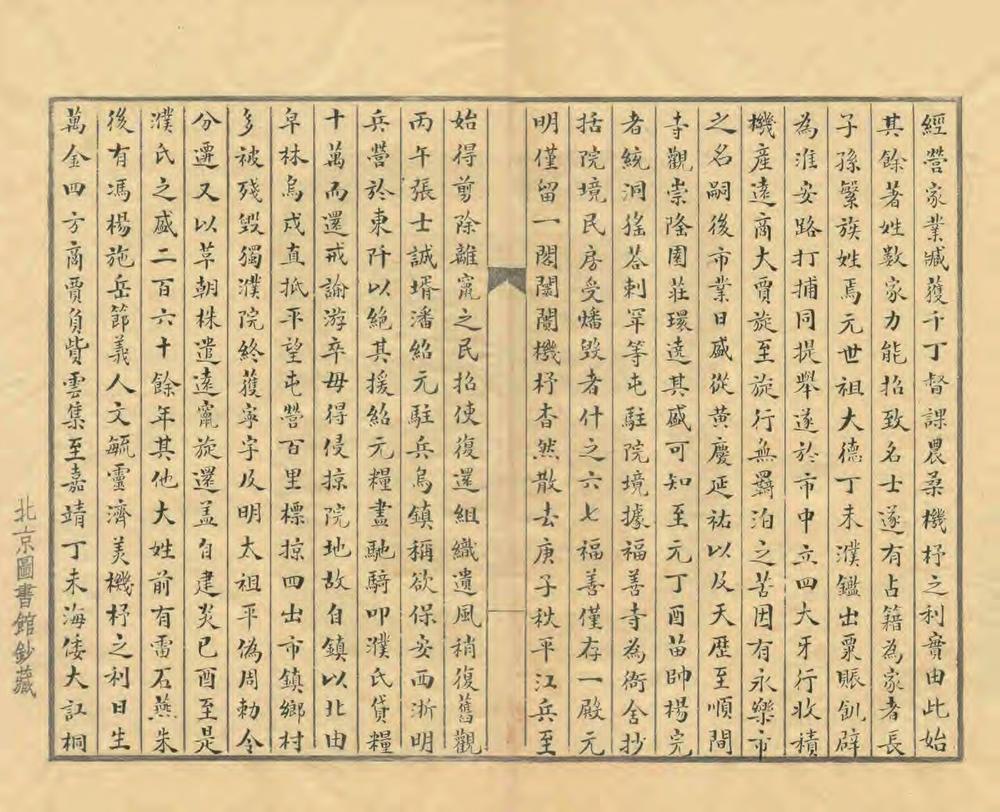 經營家業臧獲千丁督課農桑機杼之利實由此始
其餘著姓數家力能招致名士遂有占籍為家者長
子孫繁族姓焉元世祖大德丁未濮鑑出粟賑飢辟
為淮安路打捕同提舉遂於市中立四大牙行收積
機產遠商大賈旋至旋行無羈泊之苦因有永樂市
之名嗣後市業日盛從黃慶延祐以及天歷至順間
寺觀崇隆園莊環遶其盛可知至元丁酉苗帥楊完
者統洞猺荅剌罕等屯駐院境據福善寺為衙舍抄
括院境民房受燔毀者什之六七福善僅存一殿元
明僅留一閣闤闠機杼杳然散去庚子秋平江兵至
始得剪除離竄之民招使復還組織遺風稍復舊觀
丙午張士誠壻潘紹元駐兵烏鎮稱欲保安西浙明
兵營於東阡以絕其援紹元糧盡馳騎叩濮氏貸糧
十萬而還戒諭游卒毋得侵掠院地故自鎮以北由
皁林烏戍直抵平望屯營百里標掠四出市鎮鄉村
多被殘毀獨濮院終獲寧宇及明太祖平偽周勅令
分遷又以革朝株遣遠竄旋還盖自建炎已酉至是
濮氏之盛二百六十餘年其他大姓前有雷石燕朱
後有馮楊施岳節義人文毓靈濟美機杼之利日生
萬金四方商賈負貲雲集至嘉靖丁未海倭大訌桐
北京圖書館鈔藏